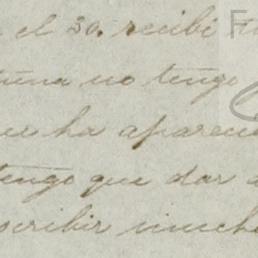 el 30. recibi
no tengo
ha aparec
tengo que dar
scribir mucho